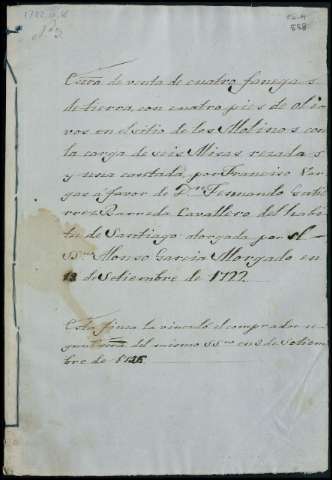 Escra de venta de cuatro fanegas
de tierra, con cuatro pies de oliv
vos en el sitio de los Molinos con
la carga de seis Misas rezadas
y una cantada, por Francisco Var
gas á favor de Dn Fernando Guti
rrez Barneda Cavallero del habi
to de Santiago otorgada por el
SSno Alonso Garcia Morgado en
13 de Setiembre de 1722
Esta finca la vinculó el comprador
del mismo SSno en 2 de Setiem
bre de